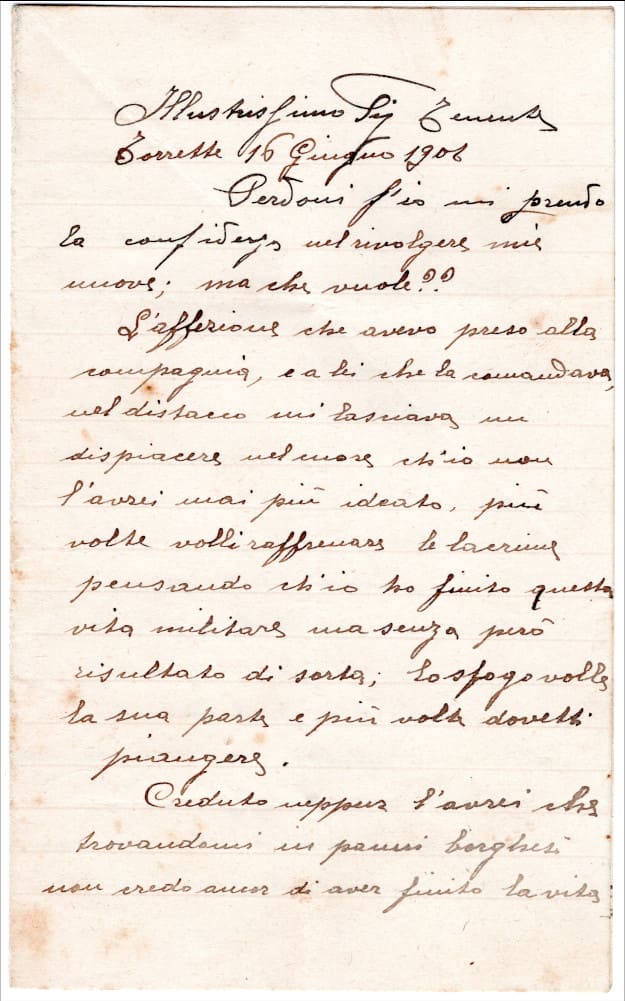 Illustrissimo Sig Tenente
Torrette 16 Giugno 1906
Perdoni s'io mi prendo
la confidenza nel rivolgere mie
nuove; ma che vuole??
L'affezione che avevo preso alla
compagnia, e a lei che la comandava,
nel distacco mi lasciava un
dispiacere nel cuore ch'io non
l'avrei mai più ideato, più
volte volli raffrenare le lacrime
pensando ch'io ho finito questa
vita militare ma senza però
risultato di sorta; lo sfogo volle
la sua parte e più volte dovetti
piangere.
Creduto neppur l'avrei che
trovandomi in panni borghesi
non credo ancor di aver finito la vita